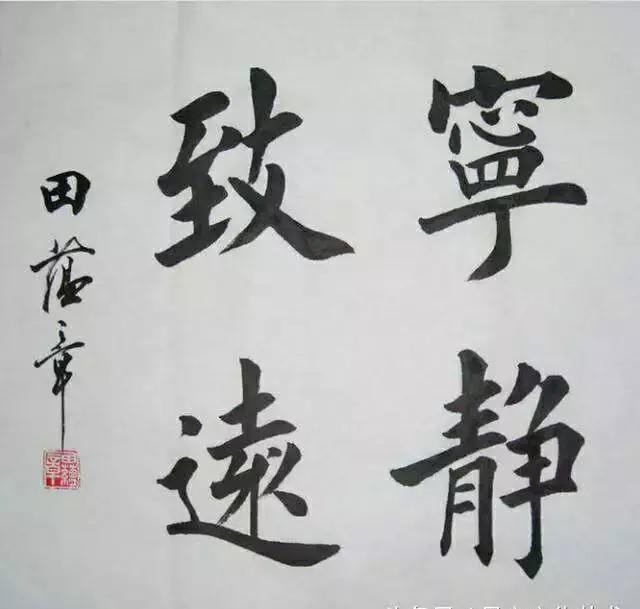 寧靜
致遠
田蕴章